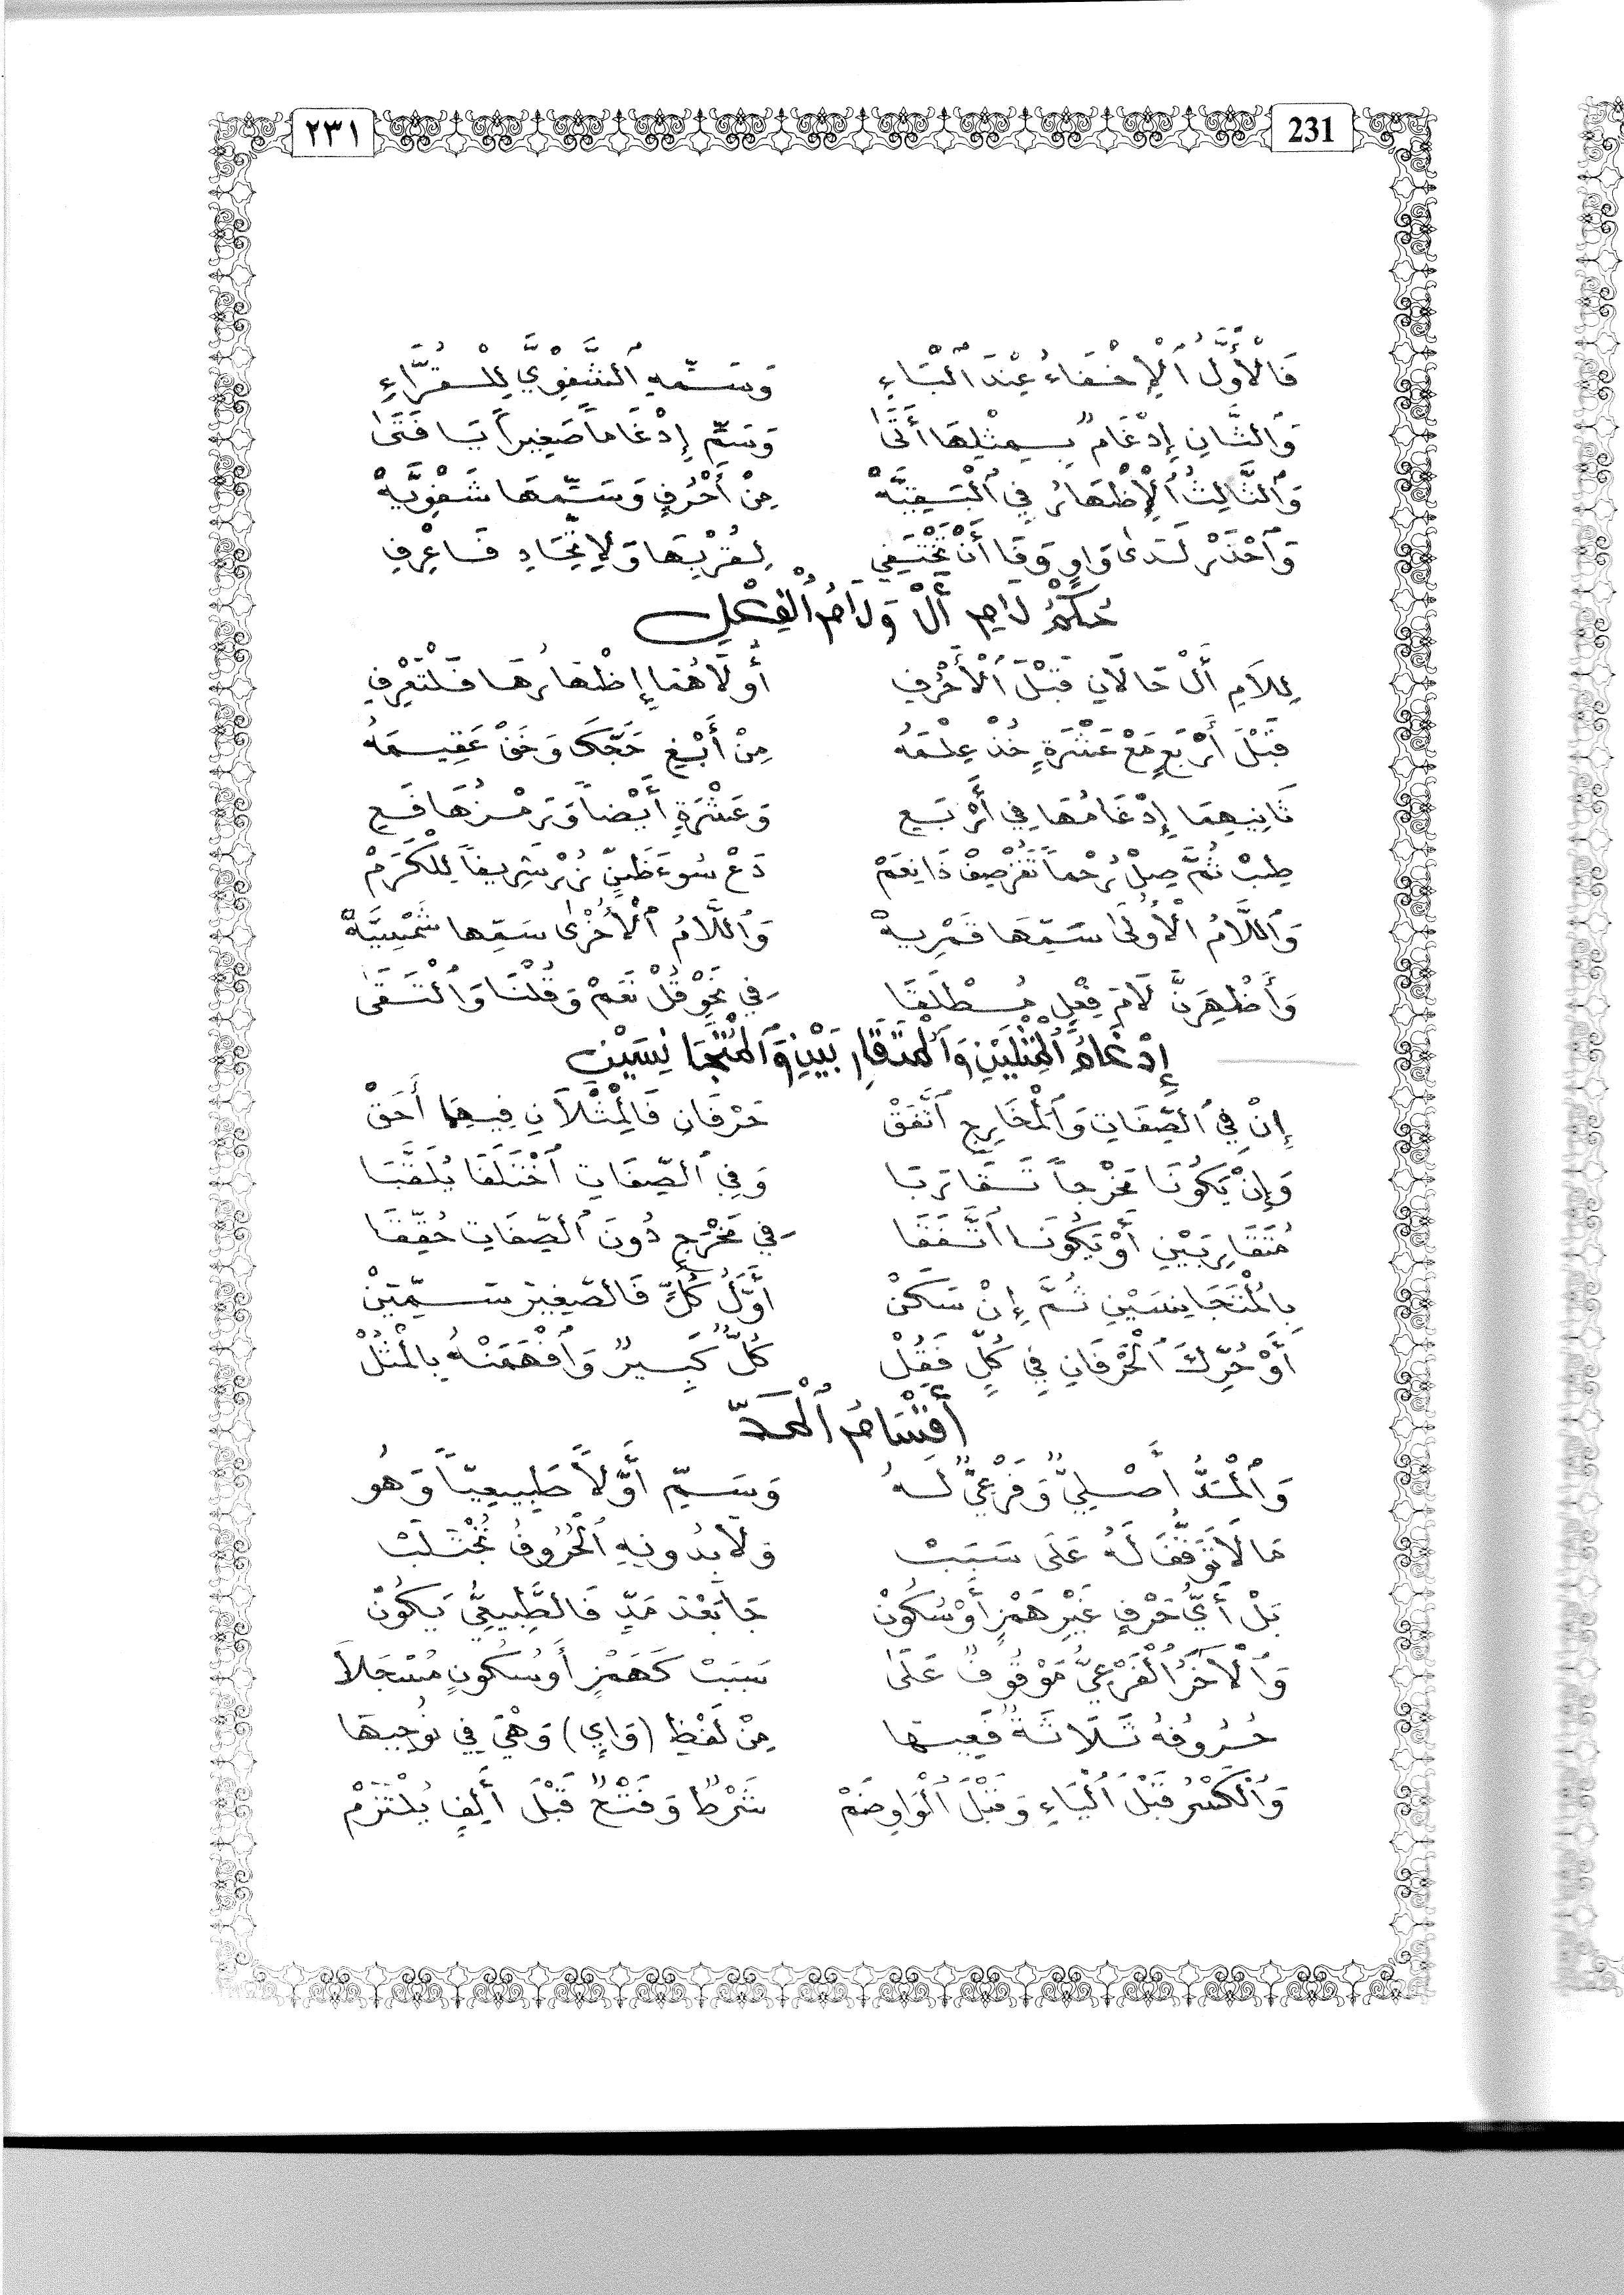 ٢٣١ 231
فَالْأَوَّلُ ٱلْإِخْفَاءُ عِنْدَ ٱلْبَاءِ وَسَمِّهِ ٱلشَّفْوِيَّ لِلْقُرَّاءِ
وَٱلثَّانِ إِدْغَامٌ بِمِثْلِهَا أَتَىٰ وَسَمِّ إِدْغَاماً صَغِيراً يَا فَتَىٰ
وَٱلثَّالِثُ ٱلْإِظْهَارُ فِي ٱلْبَقِيَّهْ مِنْ أَحْرُفٍ وَسَمِّهَا شَفْوِيَّهْ
وَٱحْذَرْ لَدَىٰ وَاوٍ وَفَا أَنْ تَخْتَفِي لِقُرْبِهَا وَلِاتِّحَادِ فَاعْرِفِ
حُكْمُ لَامِ أَلْ وَلَامُ ٱلْفِعْلِ
لِلاَمِ أَلْ حَالَانِ قَبْلَ ٱلْأَحْرُفِ أُولَاهُمَا إِظْهَارُهَا فَلْتَعْرِفِ
قَبْلَ أَرْبَعٍ مَعْ عَشْرَةٍ خُذْ عِلْمَهُ مِنْ أَبْغِ حَجَّكَ وَخَفْ عَقِيمَهُ
ثَانِيهِمَا إِدْغَامُهَا فِي أَرْبَعِ وَعَشْرَةٍ أَيْضاً وَرَمْزُهَا فَعِ
طِبْ ثُمَّ صِلْ رُحْماً تَفُزْ ضِفْ ذَا نِعَمْ دَعْ سُوءَ ظَنٍّ زُرْ شَرِيفاً لِلْكَرَمْ
وَٱللَّامُ الْأُولَىٰ سَمِّهَا قَمْرِيهْ وَٱللَّامُ ٱلْأُخْرَىٰ سَمِّهَا شَمْسِيَّهْ
وَأَظْهِرَنَّ لَامَ فِعْلٍ مُطْلَقَا فِي نَحْوِ قُلْ نَعَمْ وَقُلْنَا وَٱلْتَقَىٰ
إِدْغَامُ ٱلْمِثْلَيْنِ وَٱلْمُتَقَارِبَيْنِ وَٱلْمُتَجَانِسَيْنِ
إِنْ فِي ٱلصِّفَاتِ وَٱلْمَخَارِجِ ٱتَّفَقْ حَرْفَانِ فَالْمِثْلَانِ فِيهِمَا أَحَقْ
وَإِنْ يَكُونَا مَخْرَجاً تَقَارَبَا وَفِي ٱلصِّفَاتِ ٱخْتَلَفَا يُلَقَّبَا
مُتَقَارِبَيْنِ أَوْ يَكُونَا ٱتَّفَقَا فِي مَخْرَجٍ دُونَ ٱلصِّفَاتِ حُقِّقَا
بِالْمُتَجَانِسَيْنِ ثُمَّ إِنْ سَكَنْ أَوَّلُ كُلٍّ فَالصَّغِيرَ سَمِّيَنْ
أَوْ حُرِّكَ ٱلْحَرْفَانِ فِي كُلٍّ فَقُلْ كُلٌّ كَبِيرٌ وَٱفْهَمَنْهُ بِالْمُثُلْ
أَقْسَامُ ٱلْمَدِّ
وَٱلْمَدُّ أَصْلِيٌّ وَفَرْعِيٌّ لَهُ وَسَمِّ أَوَّلاً طَبِيعِيّاً وَهُو
مَا لَا تَوَقُّفَ لَهُ عَلَى سَبَبْ وَلَا بِدُونِهِ ٱلْحُرُوفُ تُجْتَلَبْ
بَلْ أَيُّ حَرْفٍ غَيْرِ هَمْزٍ أَوْ سُكُونْ جَا بَعْدَ مَدٍّ فَالطَّبِيعِيَّ يَكُونْ
وَٱلْآخَرُ ٱلْفَرْعِيُّ مَوْقُوفٌ عَلَىٰ سَبَبْ كَهَمْزٍ أَوْ سُكُونٍ مُسْجَلاَ
حُرُوفُهُ ثَلَاثَةٌ فَعِيهَا مِنْ لَفْظِ (وَايٍ) وَهْيَ فِي نُوحِيهَا
وَٱلْكَسْرُ قَبْلَ ٱلْيَاءِ وَقَبْلَ ٱلْوَاوِ ضَمْ شَرْطٌ وَفَتْحٌ قَبْلَ أَلِفٍ يُلْتَزَمْ